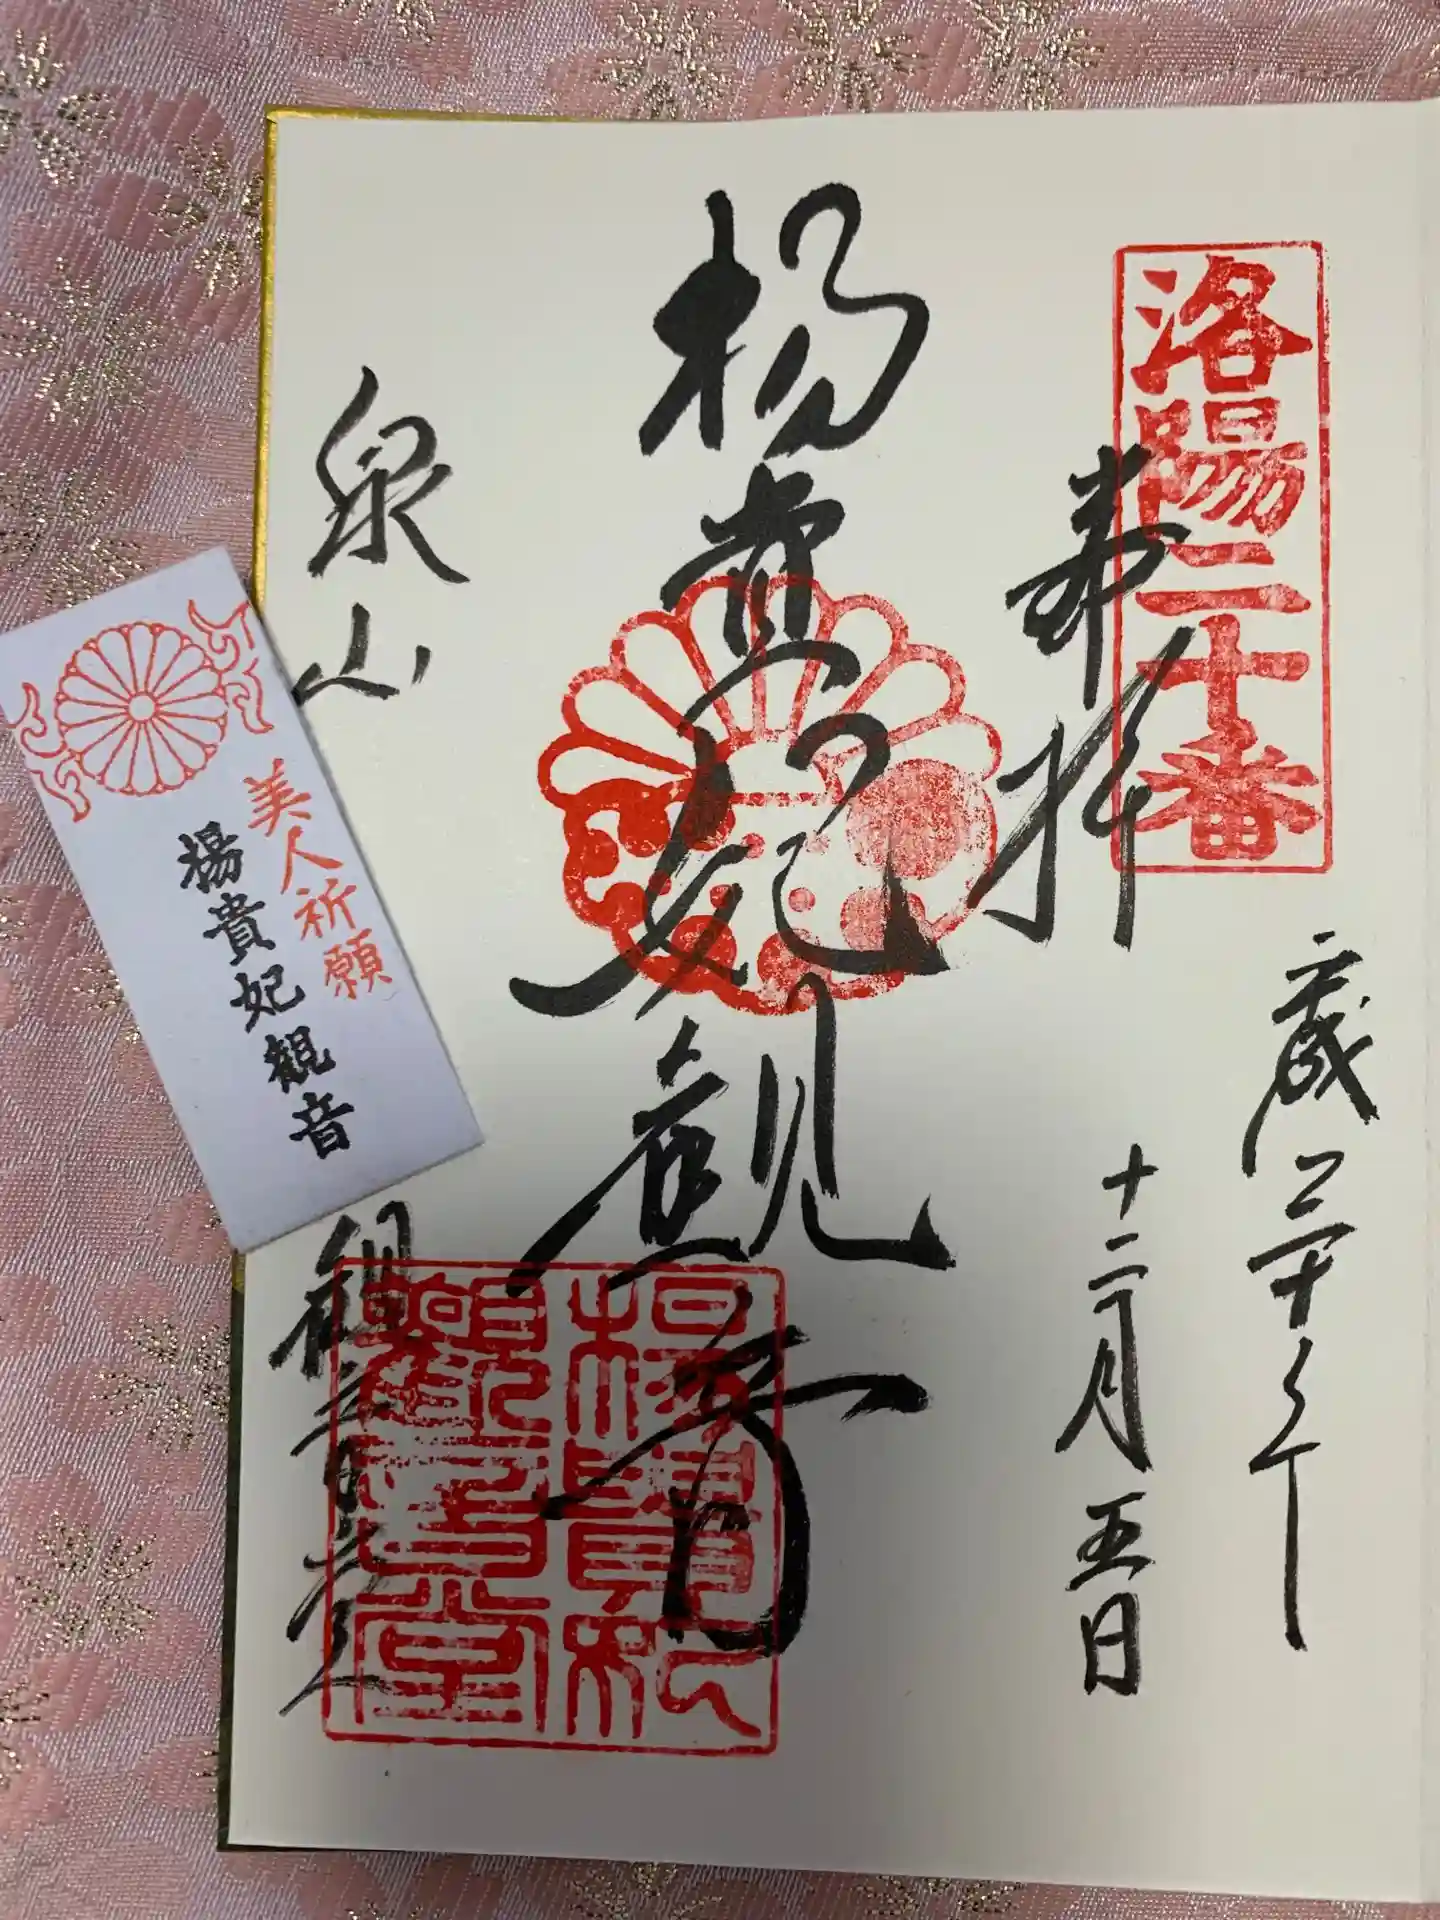 洛陽二十番
奉拝
歳三十年
十二月五日
楊貴妃観音
楊貴妃
観音堂
泉山
観音堂
美人祈願
楊貴妃観音